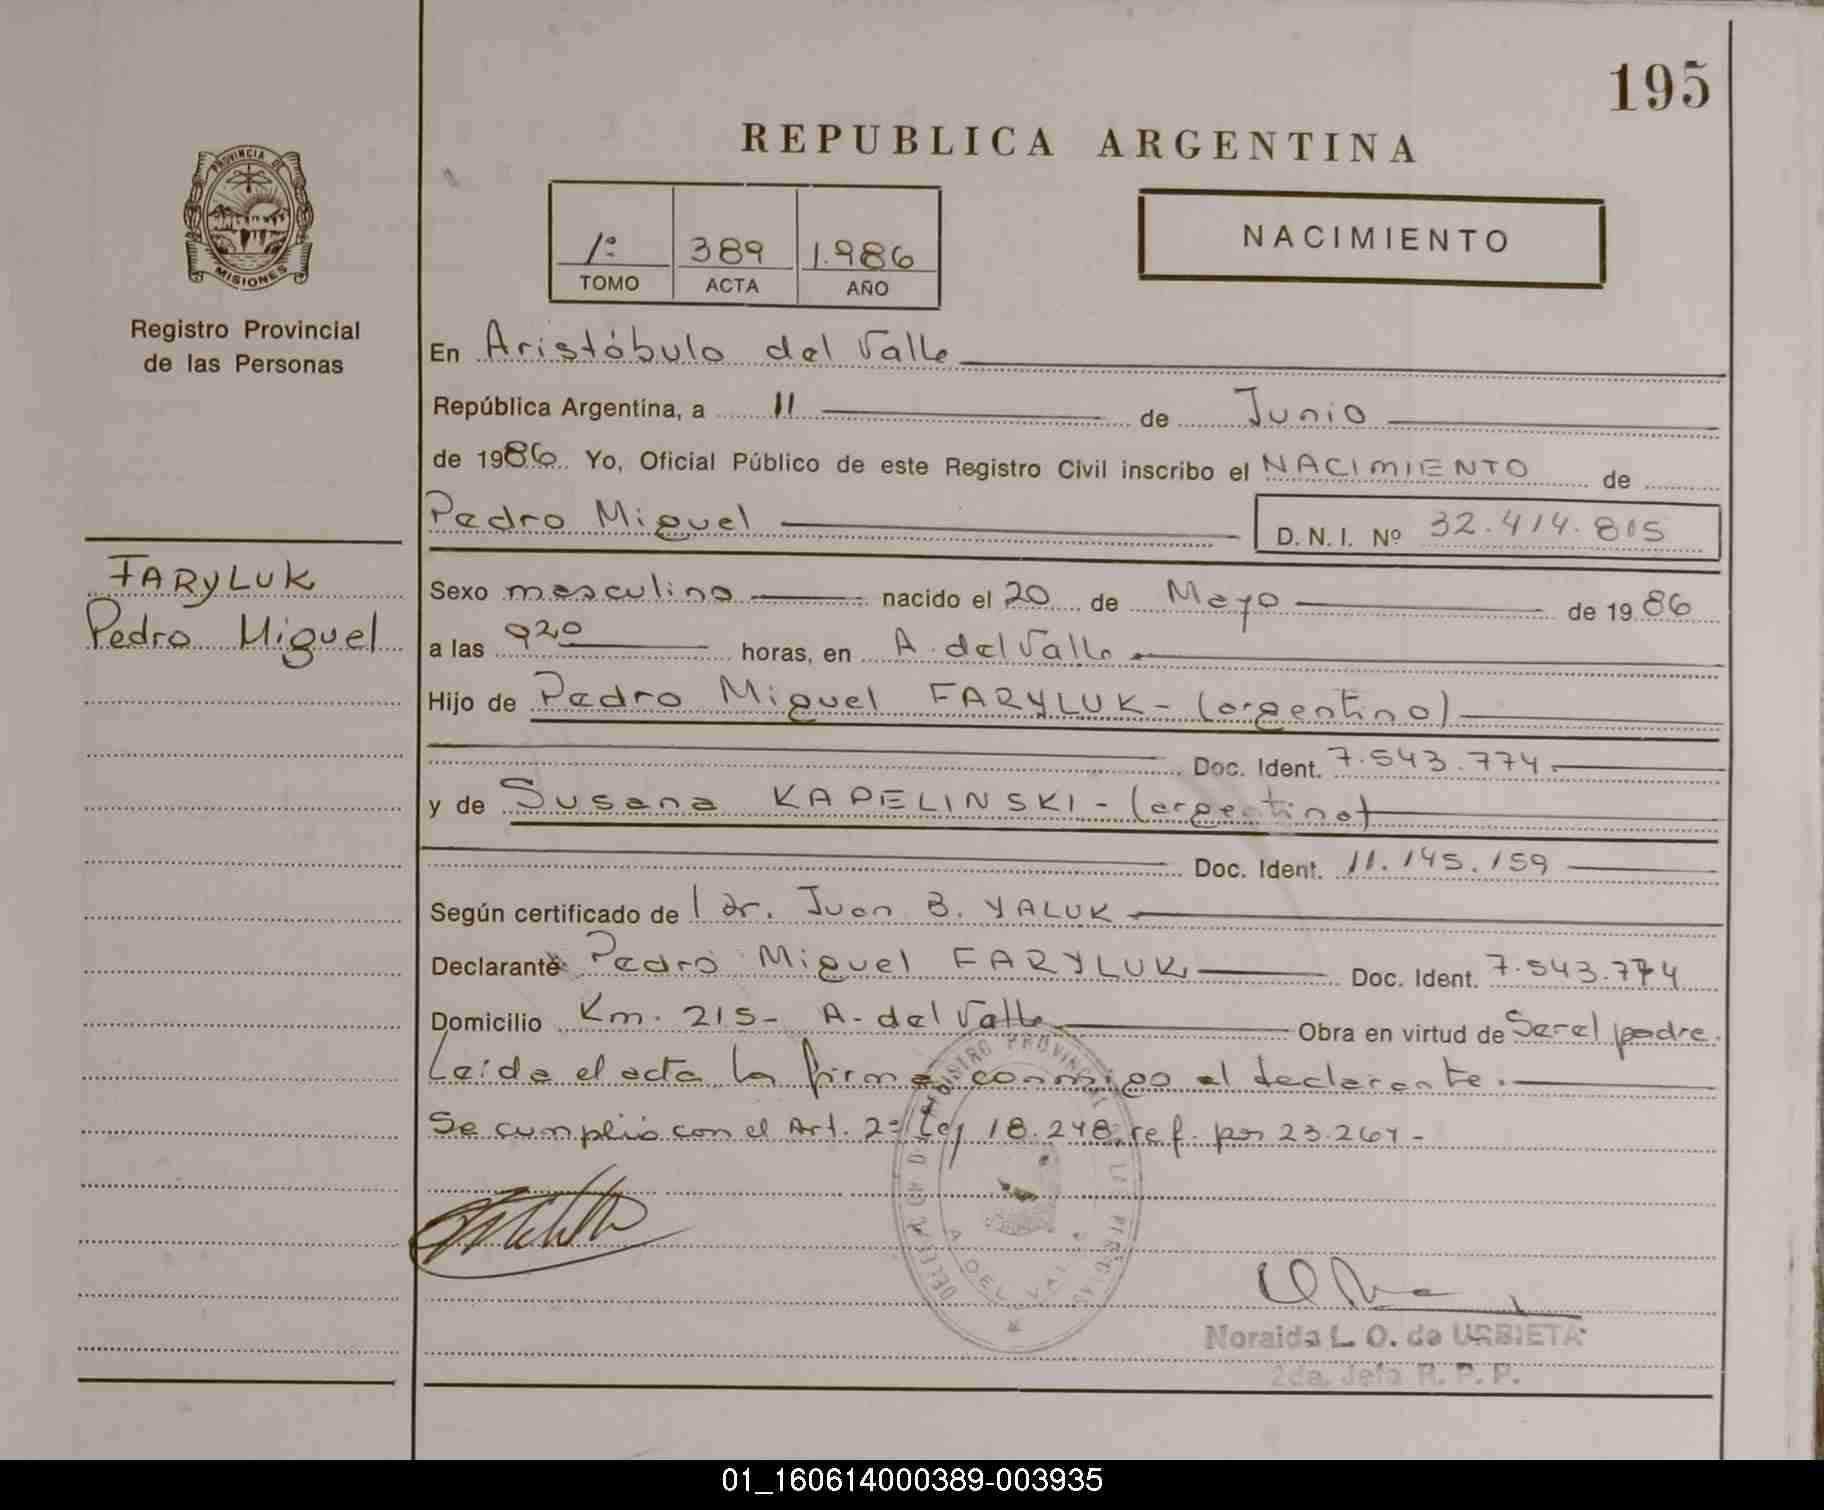 195
REPUBLICA ARGENTINA
PROVINCIA DE
MISIONES
Registro Provincial
de las Personas
1º 389 1.986
TOMO ACTA AÑO
NACIMIENTO
En Aristóbulo del Valle
República Argentina, a 11 de Junio
de 1986. Yo, Oficial Público de este Registro Civil inscribo el NACIMIENTO de
Pedro Miguel D. N. I. Nº 32.414.815
FARYLUK
Pedro Miguel
Sexo masculino nacido el 20 de Mayo de 1986
a las 920 horas, en A. del Valle
Hijo de Pedro Miguel FARYLUK - (argentino)
Doc. Ident. 7.543.774.
y de Susana KAPELINSKI - (argentina)
Doc. Ident. 11.145.159
Según certificado de dr. Juan B. YALUK
Declarante Pedro Miguel FARYLUK Doc. Ident. 7.543.774
Domicilio Km. 215- A. del Valle Obra en virtud de Ser el padre.
Leída el acta la firma conmigo el declarante.
Se cumplió con el Art. 2º Ley 18.248 ref. por 23.264 -
DELEGACION REGISTRO PROVINCIAL DE LAS PERSONAS
A. DEL VALLE
Noraida L. O. de URBIETA
2da. Jefa R. P. P.
01_160614000389-003935